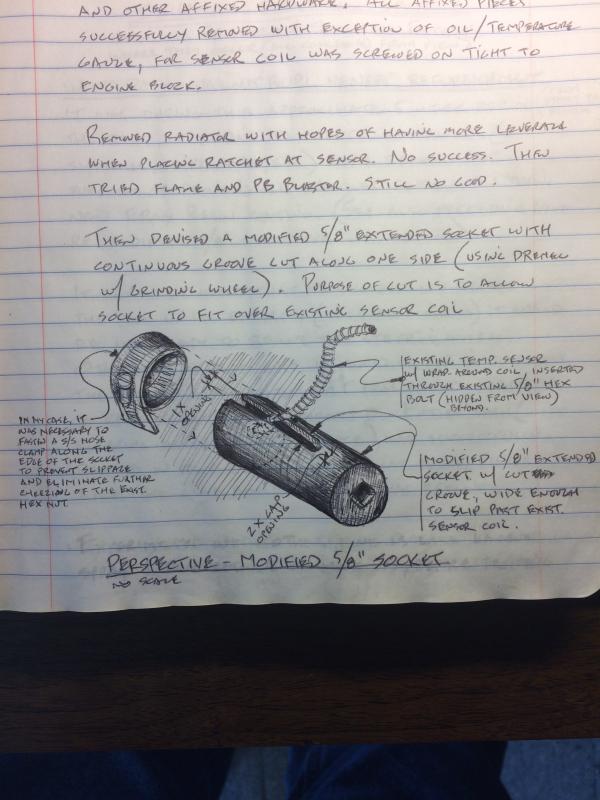 AND OTHER AFFIXED HARDWARE. ALL AFFIXED PIECES
SUCCESSFULLY REMOVED WITH EXCEPTION OF OIL/TEMPERATURE
GAUGE, FOR SENSOR COIL WAS SCREWED ON TIGHT TO
ENGINE BLOCK.
REMOVED RADIATOR WITH HOPES OF HAVING MORE LEVERAGE
WHEN PLACING RATCHET AT SENSOR. NO SUCCESS. THEN
TRIED FLAME AND PB BLASTER. STILL NO GOOD.
THEN DEVISED A MODIFIED 5/8" EXTENDED SOCKET WITH
CONTINUOUS GROOVE CUT ALONG ONE SIDE (USING DREMEL
W/ GRINDING WHEEL). PURPOSE OF CUT IS TO ALLOW
SOCKET TO FIT OVER EXISTING SENSOR COIL
EXISTING TEMP. SENSOR
W/ WRAP-AROUND COIL INSERTED
THROUGH EXISTING 5/8" HEX
BOLT (HIDDEN FROM VIEW)
BEYOND.
1X
OPENING
IN MY CASE, IT
WAS NECESSARY TO
FASTEN A S/S HOSE
CLAMP ALONG THE
EDGE OF THE SOCKET
TO PREVENT SLIPPAGE
AND ELIMINATE FURTHER
OF THE EXIST.
HEX NUT.
MODIFIED 5/8" EXTENDED
SOCKET W/ CUT
GROOVE, WIDE ENOUGH
TO SLIP PAST EXIST.
SENSOR COIL.
2X GAP
OPENING
PERSPECTIVE - MODIFIED 5/8" SOCKET
NO SCALE